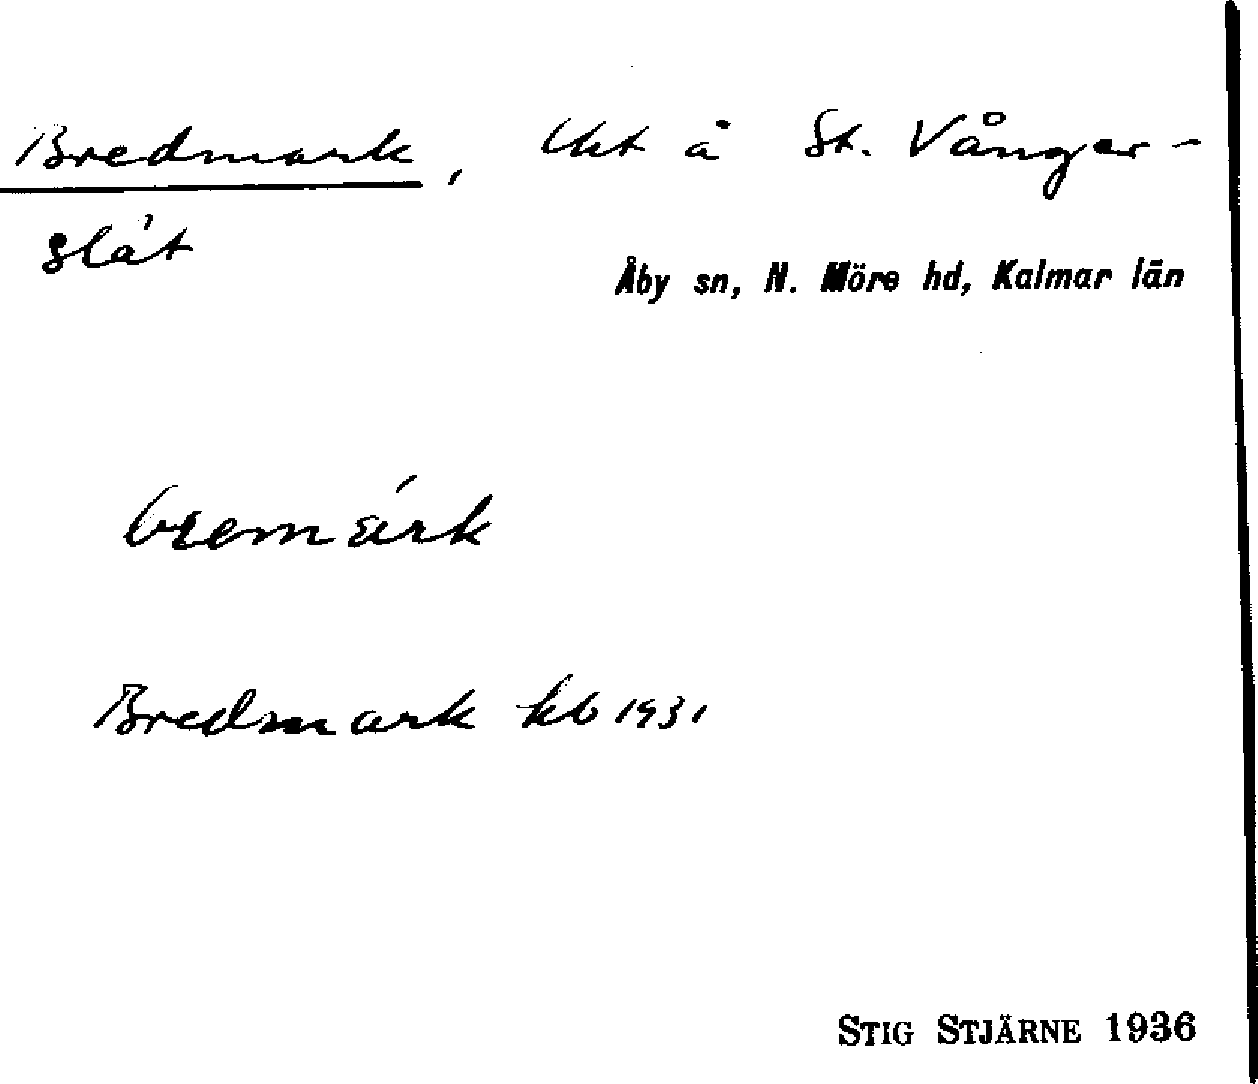 Bredmark, Uet å St. Vånger-
slät
Åby sn, N. Möre hd, Kalmar län
Bredmark kb 1931
STIG STJÄRNE 1936